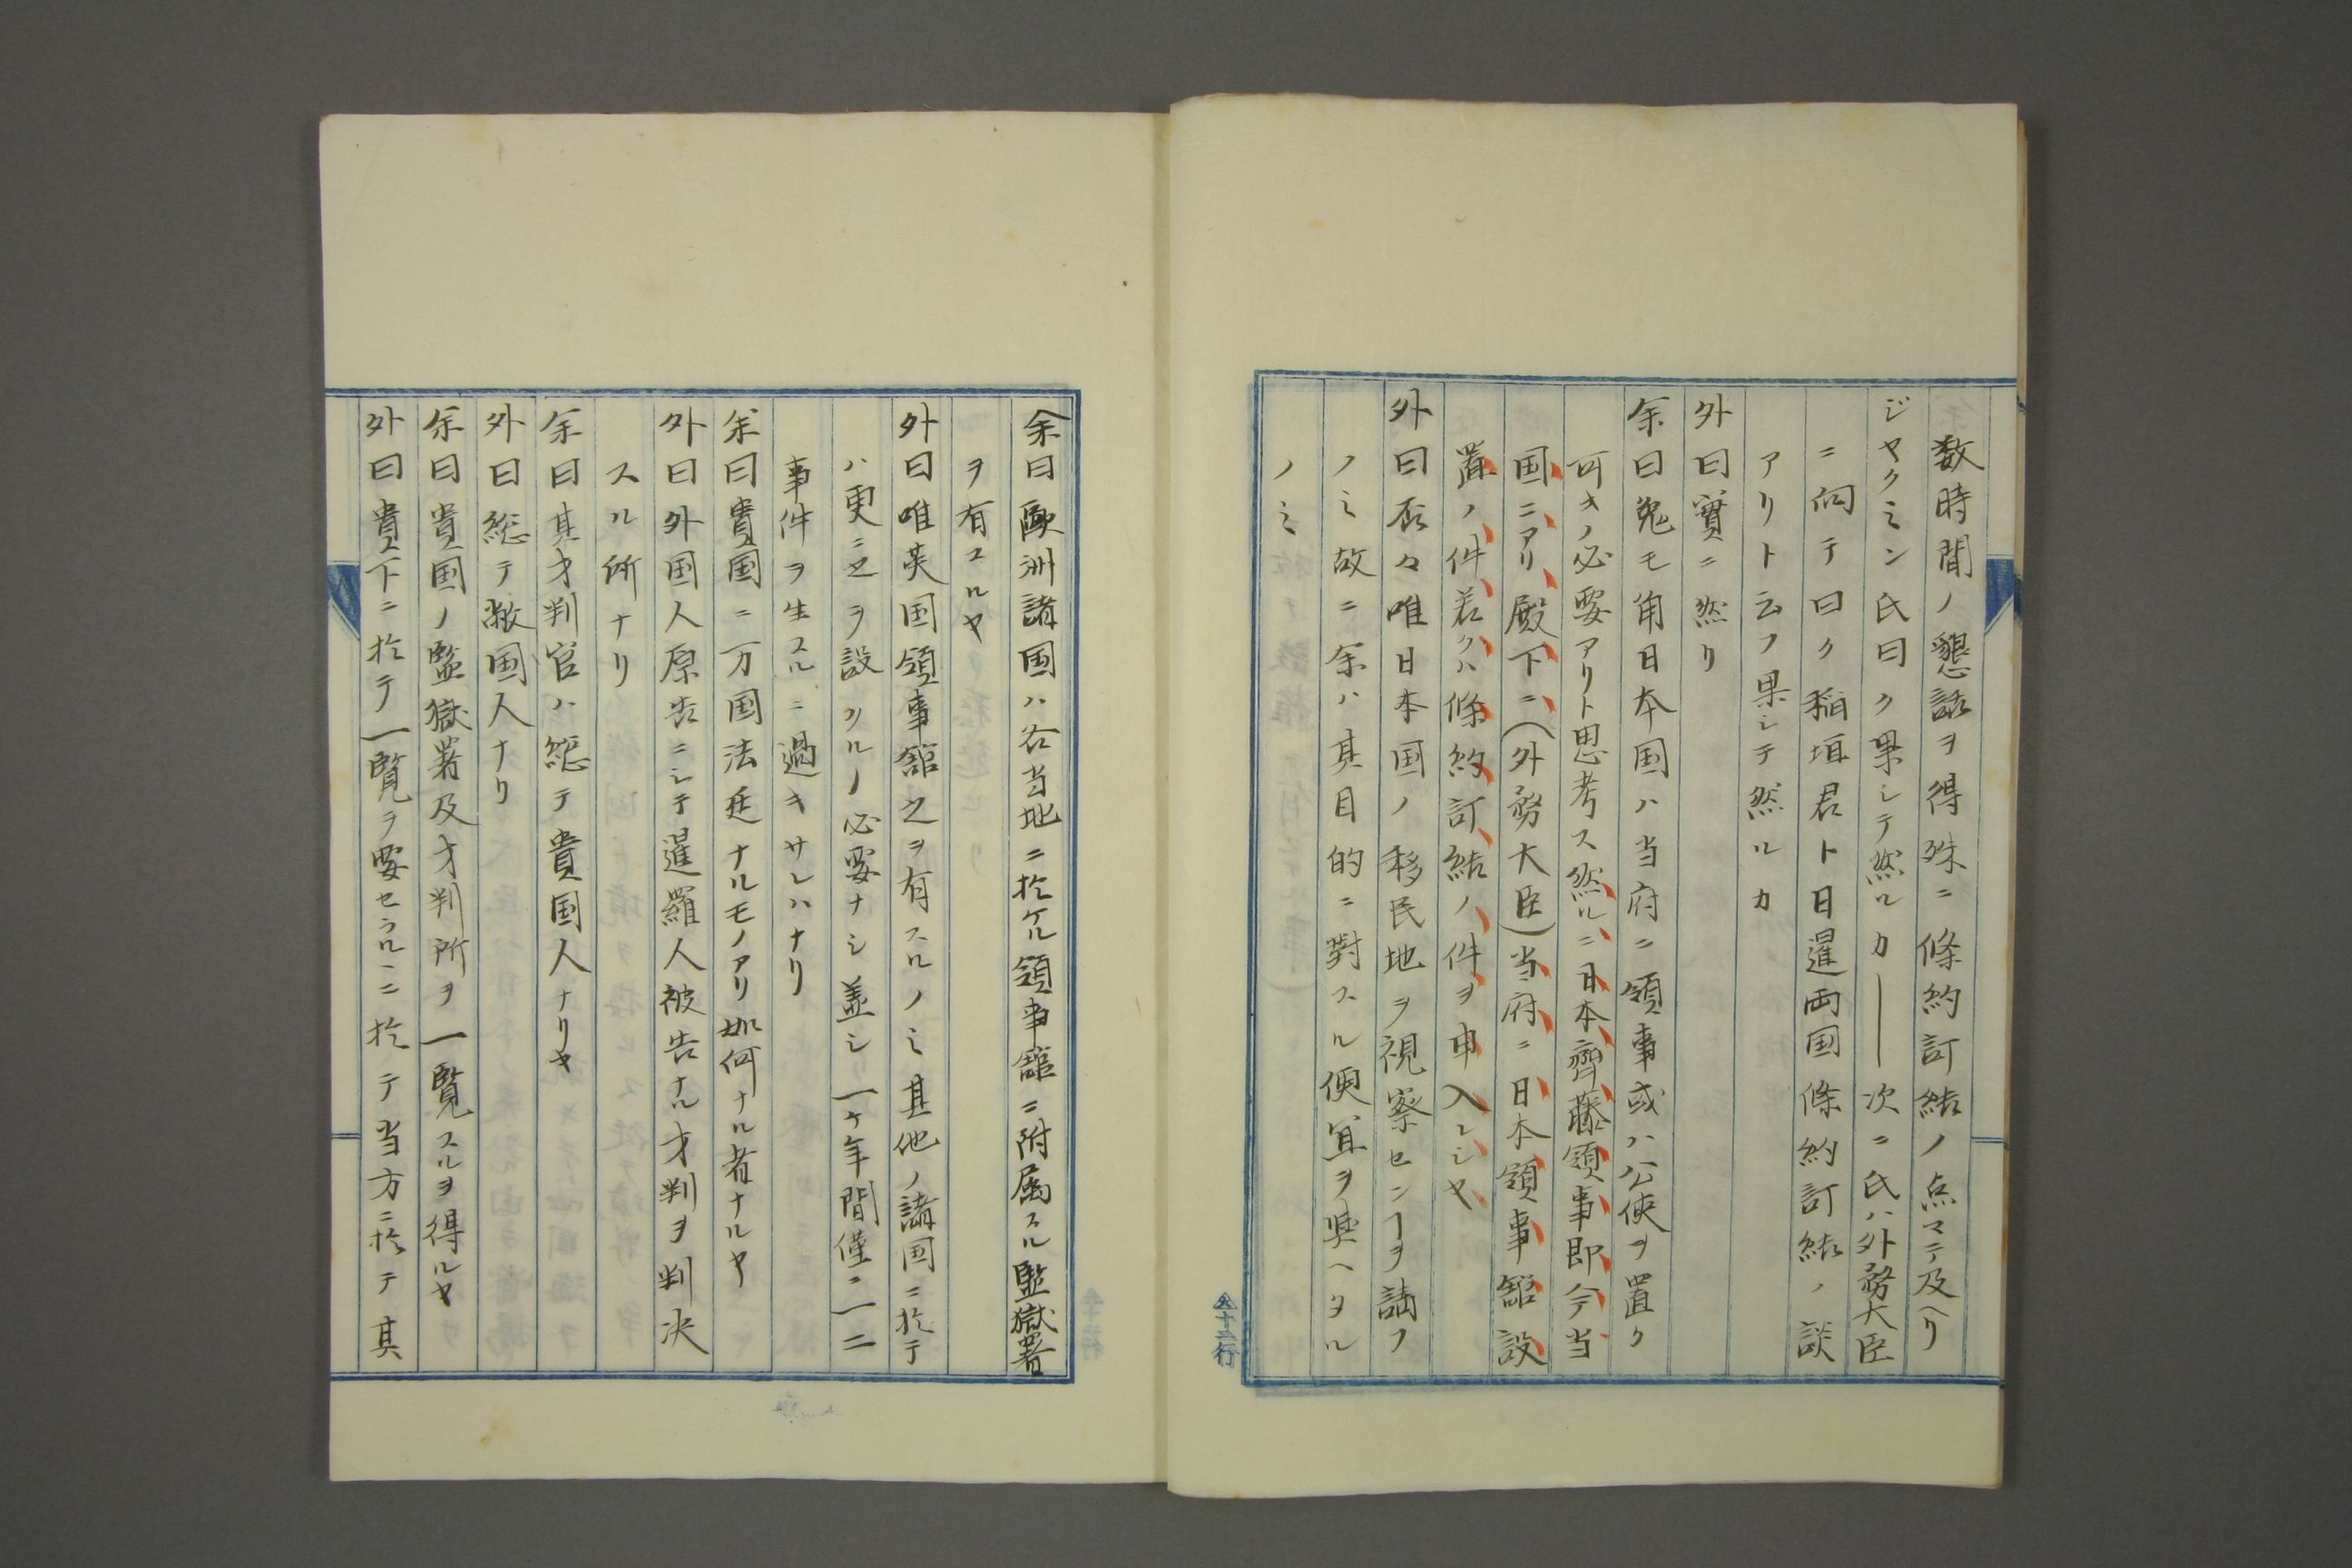 数時間ノ懇話ヲ得殊ニ條約訂結ノ点マテ及ヘリ
ジヤクミン氏曰ク果シテ然ルカ――次ニ氏ハ外務大臣
ニ向テ曰ク稲垣君ト日暹両国條約訂結ノ談
アリト云フ果シテ然ルカ
外曰實ニ然リ
余曰兎モ角日本国ハ当府ニ領事或ハ公使ヲ置ク
可キノ必要アリト思考ス然ルニ日本齊藤領事即今当
国ニアリ殿下ニ(外務大臣)当府ニ日本領事舘設
置ノ件若クハ條約訂結ノ件ヲ申入レシヤ
外曰否々唯日本国ノ移民地ヲ視察センヿヲ請フ
ノミ故ニ余ハ其目的ニ對スル便宜ヲ與ヘタル
ノミ
全十二行
余曰歐洲諸国ハ各当地ニ於ケル領事舘ニ附属スル監獄署
ヲ有スルヤ
外曰唯英国領事舘之ヲ有スルノミ其他ノ諸国ニ於テ
ハ更ニ之ヲ設クルノ必要ナシ盖シ一ヶ年間僅ニ一二
事件ヲ生スルニ過キサレハナリ
余曰貴国ニ万国法廷ナルモノアリ如何ナル者ナルヤ
外曰外国人原告ニシテ暹羅人被告ナル才判ヲ判决
スル所ナリ
余曰其才判官ハ総テ貴国人ナリヤ
外曰総テ敝国人ナリ
余曰貴国ノ監獄署及才判所ヲ一覧スルヲ得ルヤ
外曰貴下ニ於テ一覧ヲ要セラルニ於テ当方ニ於テ其